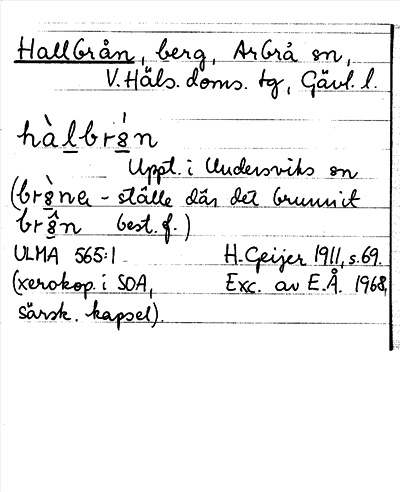 Hallbrån, berg, Arbrå sn,
V. Häls. doms. tg, Gävl. l.
hàlbrån
Uppt. i Undersviks sn
(bråna - ställe där det brunnit
brån best. f.)
ULMA 565:1 H. Geijer 1911, s. 69.
(xerokop. i SOA, Exc. av E.Å. 1968,
särsk. kapsel).